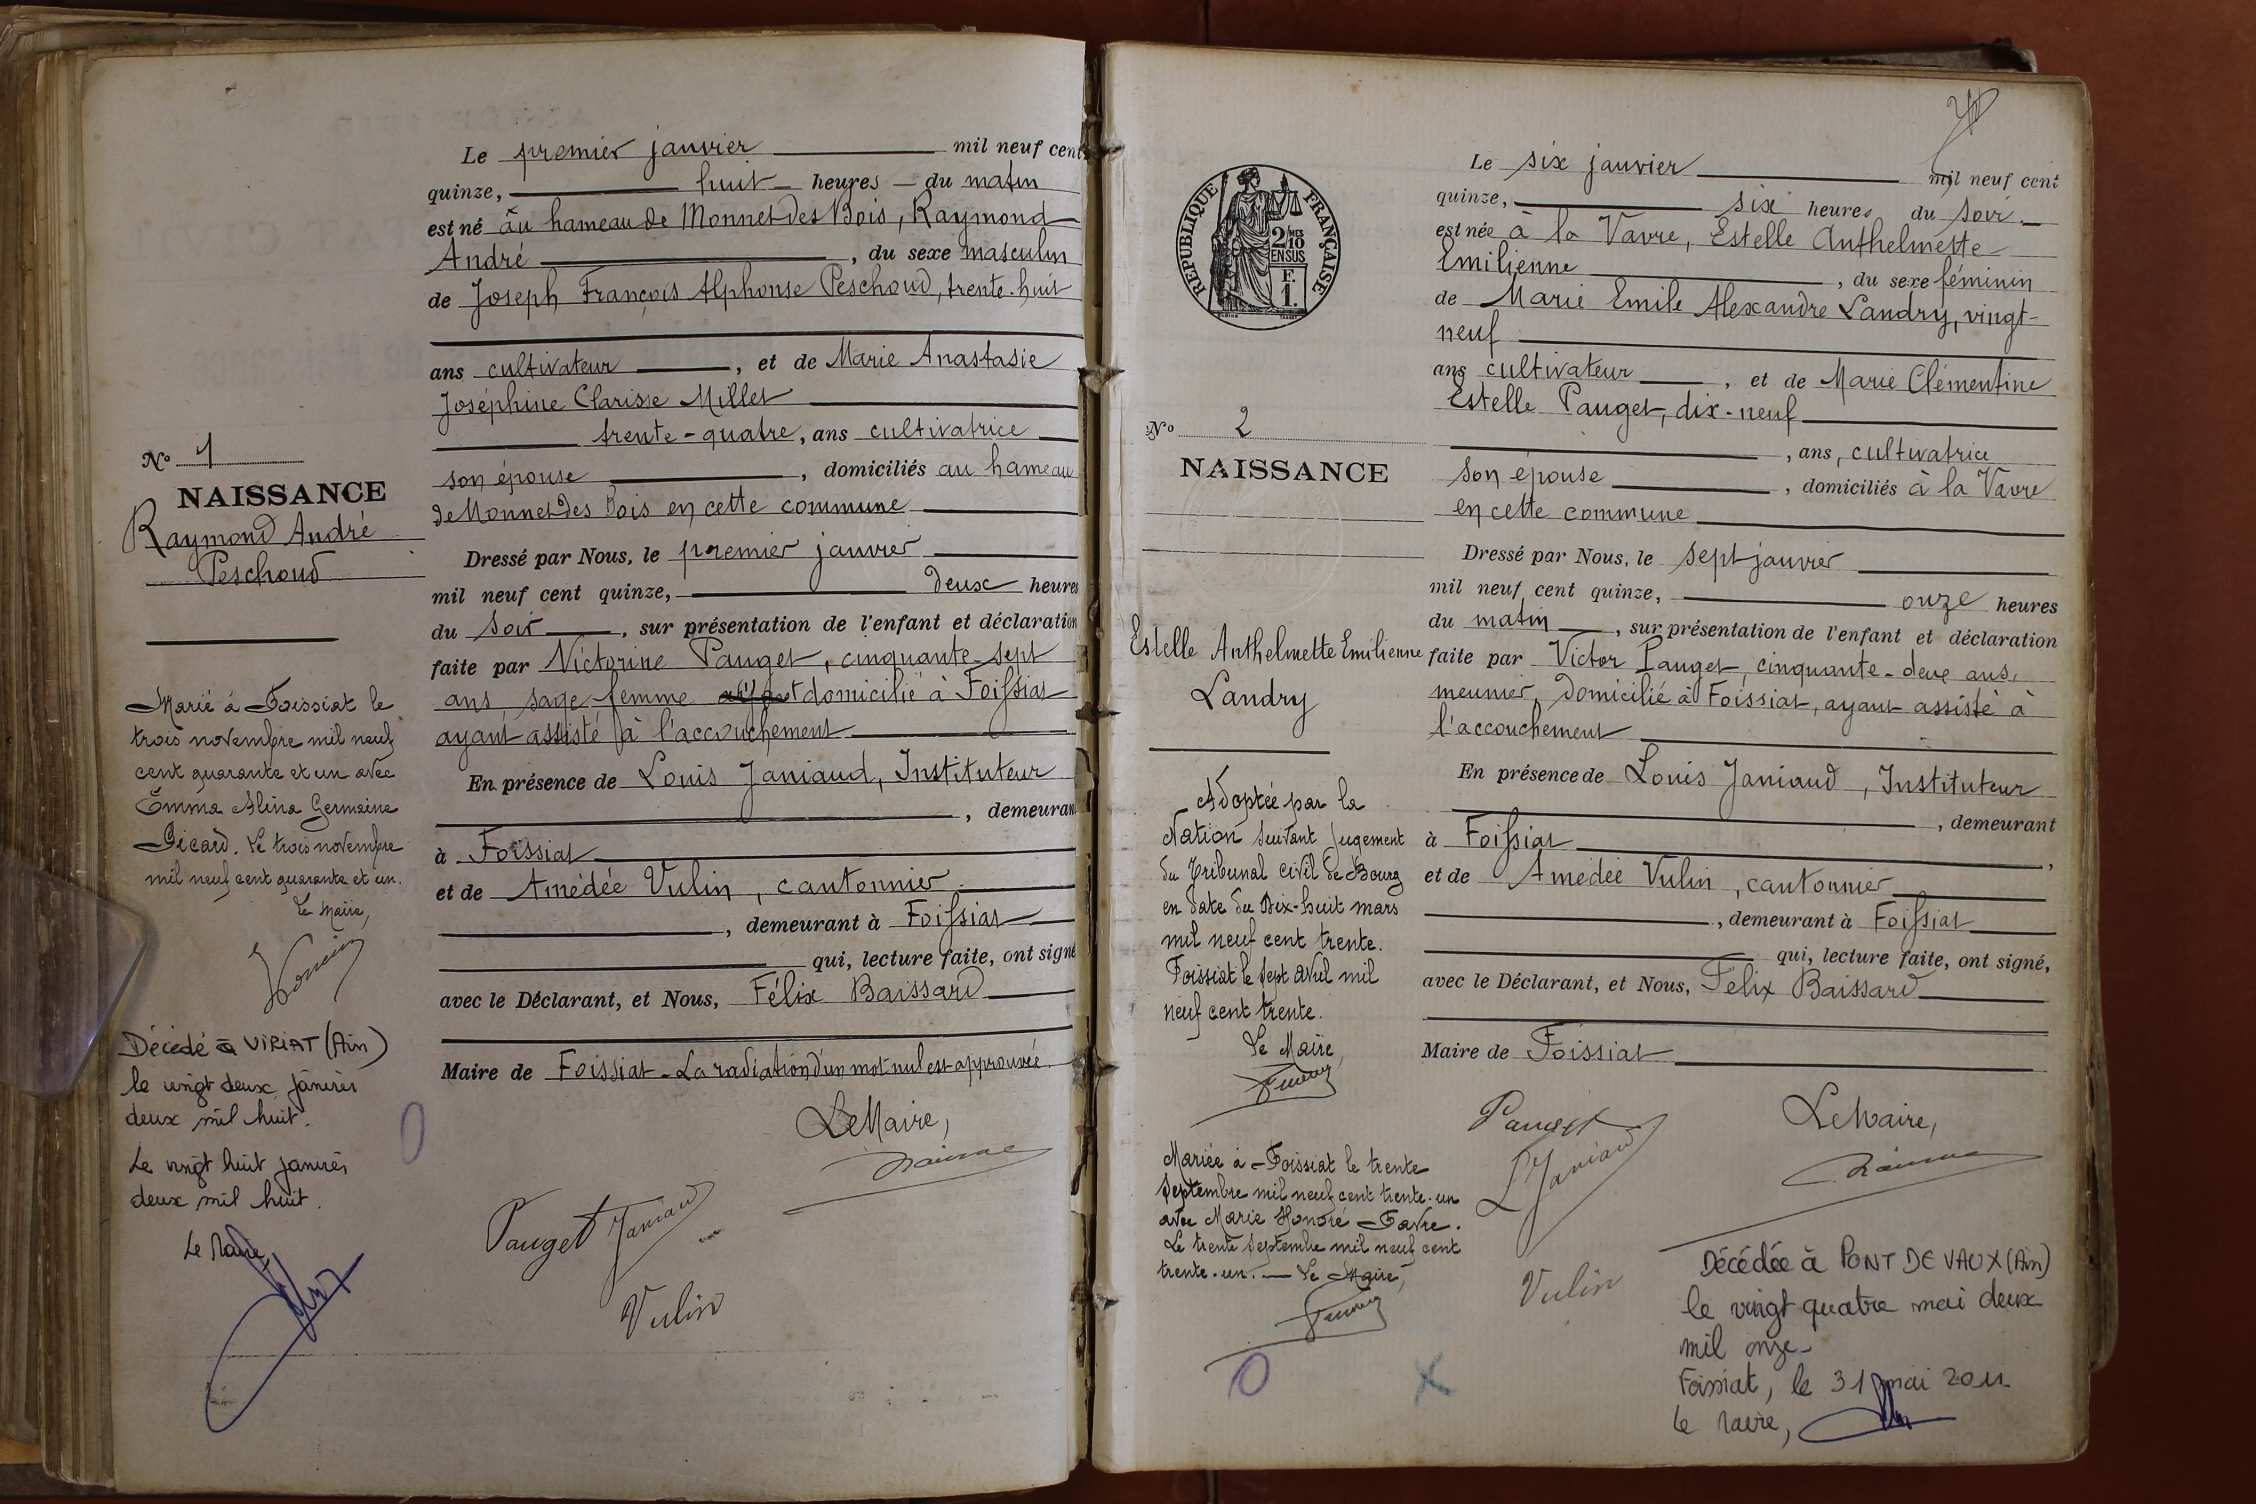 Le premier janvier mil neuf cent
quinze, huit heures du matin
est né au hameau de Monnet des Bois, Raymond
André, du sexe masculin
de Joseph François Alphonse Peschoud, trente-huit
ans cultivateur, et de Marie Anastasie
Joséphine Clarisse Millet
trente-quatre, ans cultivatrice
son épouse, domiciliés au hameau
de Monnet des Bois en cette commune
Dressé par Nous, le premier janvier
mil neuf cent quinze, deux heures
du soir, sur présentation de l'enfant et déclaration
faite par Victorine Pauget, cinquante-sept
ans, sage-femme domicilié à Foissiat
ayant assisté à l'accouchement
En présence de Louis Janiaud, Instituteur
, demeurant
à Foissiat
et de Amédée Vulin, cantonnier
, demeurant à Foissiat
qui, lecture faite, ont signé
avec le Déclarant, et Nous, Félix Baissard
Maire de Foissiat - La radiation d'un mot nul est approuvée.
Le Maire,
Pauget Janiaud
Vulin
No 1
NAISSANCE
Raymond André
Peschoud
Marié à Foissiat le
trois novembre mil neuf
cent quarante et un avec
Emma Alina Germaine
Gicard. Le trois novembre
mil neuf cent quarante et un.
Le Maire,
Décédé à VIRIAT (Ain)
le vingt deux janvier
deux mil huit.
Le vingt huit janvier
deux mil huit.
Le Maire,
REPUBLIQUE FRANÇAISE
2/10 MES
EN SUS
F.
1.
No 2
NAISSANCE
Estelle Anthelmette Emilienne
Landry
Adoptée par la
Nation suivant jugement
du Tribunal civil de Bourg
en date du Dix-huit mars
mil neuf cent trente.
Foissiat le sept avril mil
neuf cent trente.
Le Maire,
Mariée à Foissiat le trente
septembre mil neuf cent trente-un
avec Marie Honoré Favre.
Le trente septembre mil neuf cent
trente-un. — Le Maire,
Le six janvier mil neuf cent
quinze, six heures du soir
est née à la Vavre, Estelle Anthelmette
Emilienne, du sexe féminin
de Marie Emile Alexandre Landry, vingt-
neuf
ans cultivateur, et de Marie Clémentine
Estelle Pauget, dix-neuf
, ans, cultivatrice
son épouse, domiciliés à la Vavre
en cette commune
Dressé par Nous, le sept janvier
mil neuf cent quinze, onze heures
du matin, sur présentation de l'enfant et déclaration
faite par Victor Pauget, cinquante-deux ans,
meunier, domicilié à Foissiat, ayant assisté à
l'accouchement
En présence de Louis Janiaud, Instituteur
, demeurant
à Foissiat,
et de Amédée Vulin, cantonnier
, demeurant à Foissiat
qui, lecture faite, ont signé,
avec le Déclarant, et Nous, Félix Baissard
Maire de Foissiat
Le Maire,
Pauget
L Janiaud
Vulin
Décédée à PONT DE VAUX (Ain)
le vingt quatre mai deux
mil onze.
Foissiat, le 31 mai 2011
Le Maire,